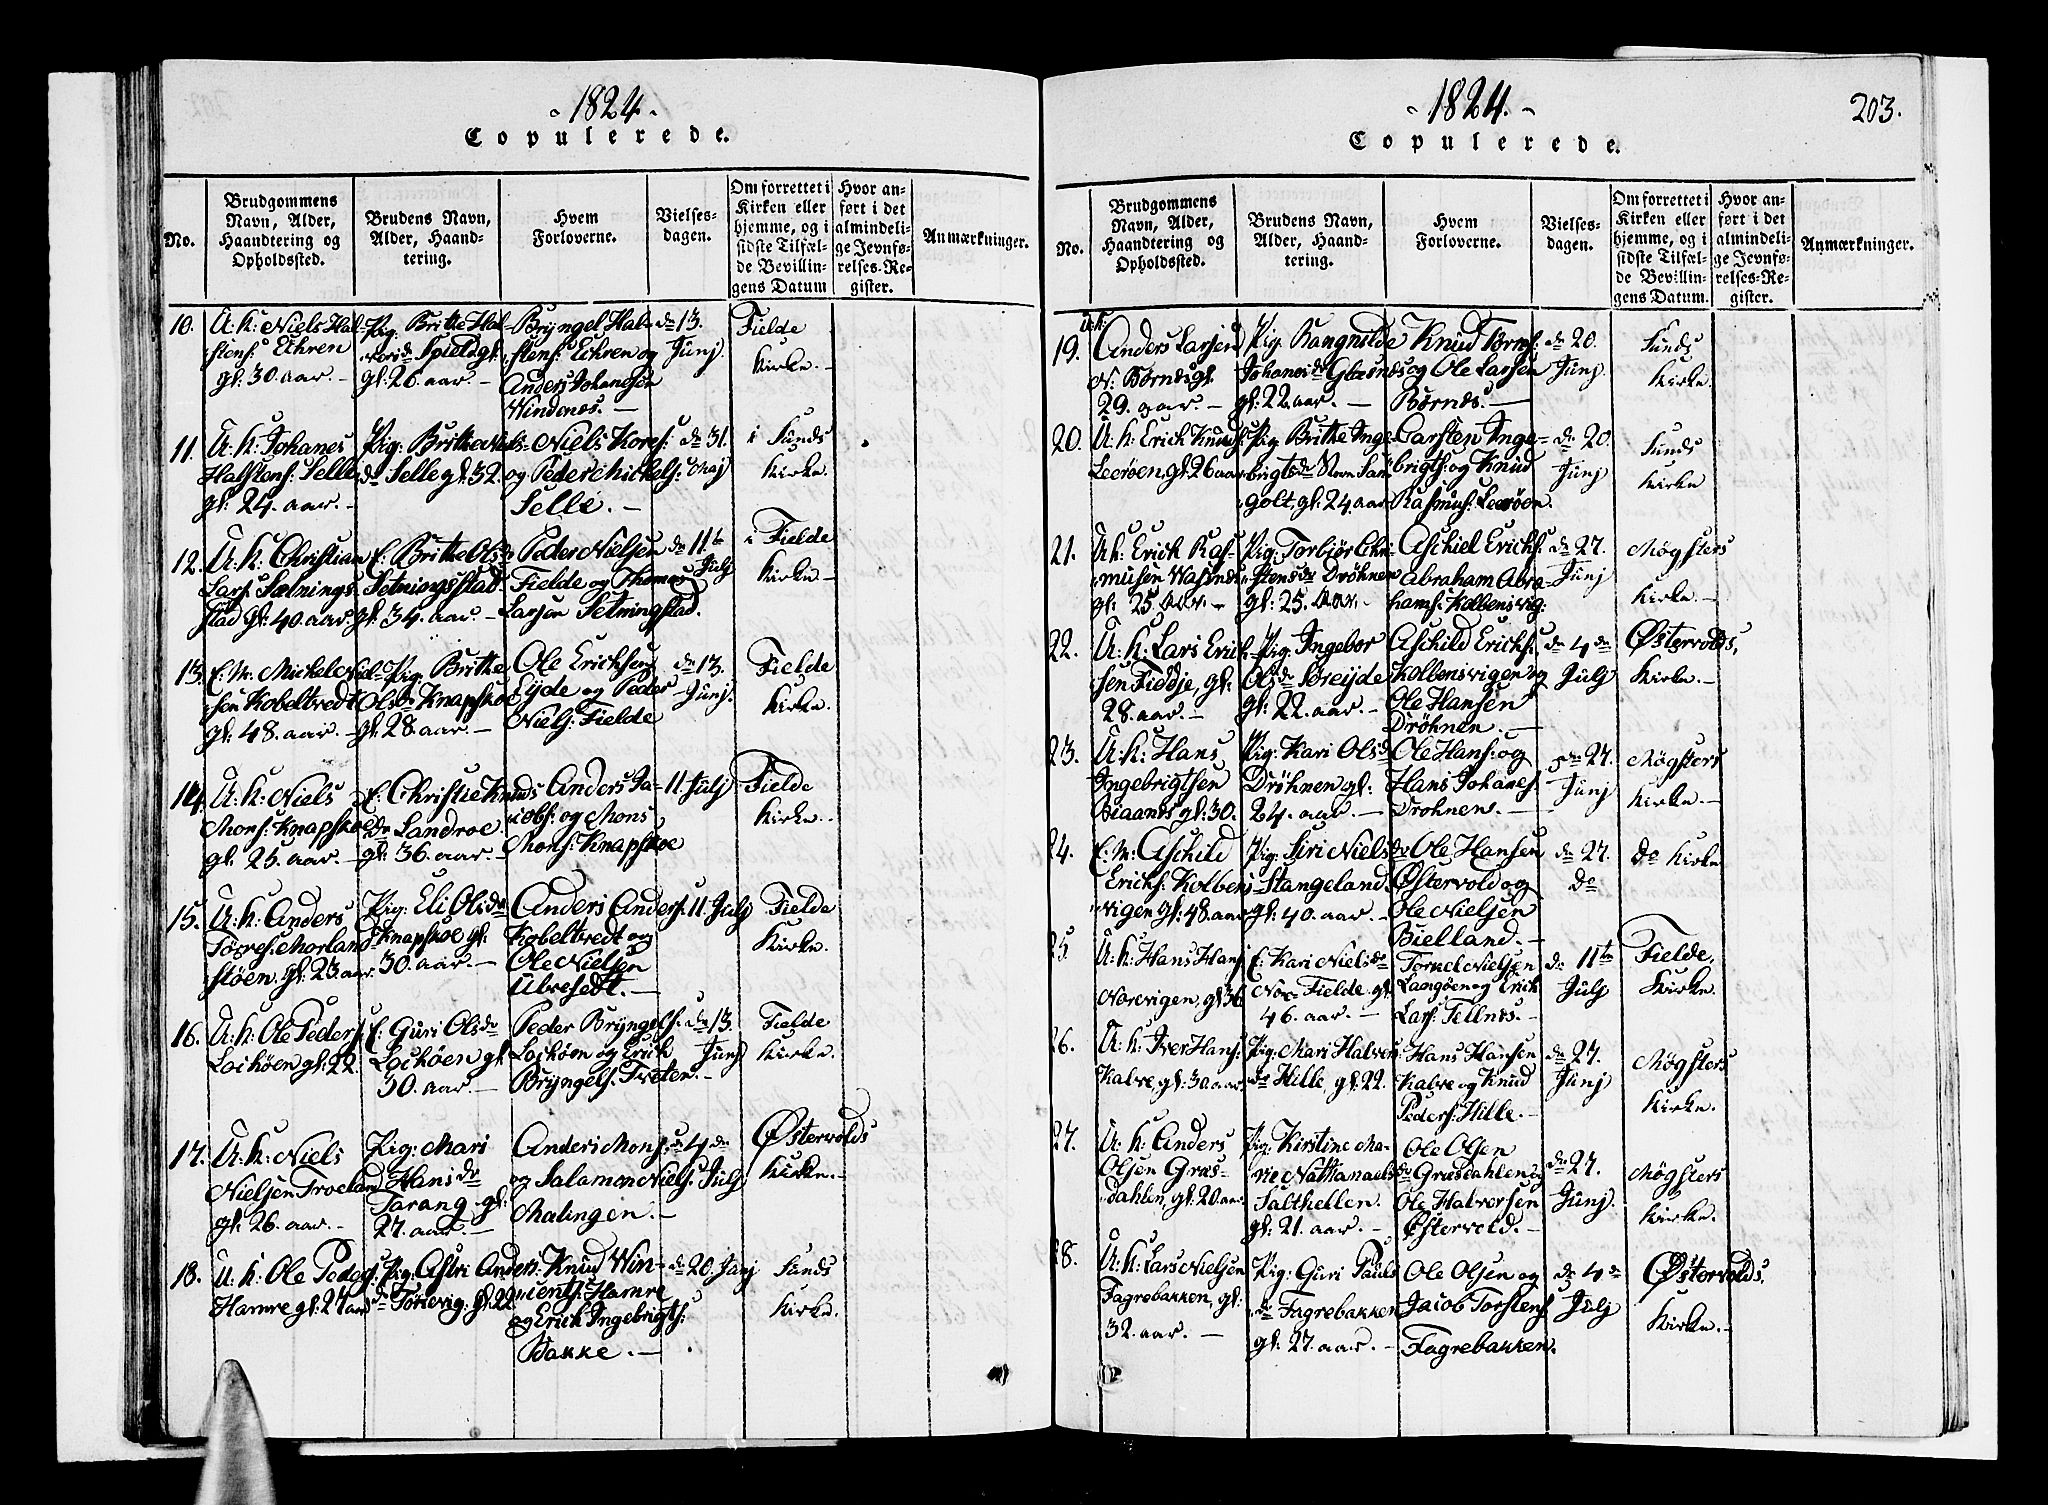 1824.
Copulerede.
No.
Brudgommens
Navn, Alder,
Haandtering og
Opholdssted.
Brudens Navn,
Alder, Haand-
tering.
Hvem
Forloverne.
Vielses-
dagen.
Om forrettet i
Kirken eller
hjemme, og i
sidste Tilfæl-
de Bevillin-
gens Datum
Hvor an-
ført i det
almindeli-
ge Jevnfø-
relses-Re-
gister.
Anmærkninger.
10.
U: K: Niels Hal-
stens: Echren
gl: 30. aar. –
Pig: Britte Hal-
Spield gl:
gl: 26. aar. –
Bryngel Hal-
stens: Echren og
Anders Johanesen
Windenes. –
dn 13.
Junj
Fielde
Kirke. –
11.
U: K: Johanes
Halstens: Selle
gl: 24. aar. –
Pig: Britte Niels-
dr Selle gl: 32.
Niels Kors:
og Peder Mickels:
Selle. –
dn 31.
Maj
i Sunds
Kirke.
12.
U: K: Christian
Lars: Sætnings-
stad gl: 40. aar.
E: Britte Olsdr
Setningsstad
gl: 34. aar. –
Peder Nielsen
Fielde og Thomas
Larsen Setningstad.
dn 11te
Julj
i Fielde
Kirke –
13.
E: M: Mickel Niel-
sen Kobeltvedt
gl: 48. aar. –
Pig: Britte
Olsdr Knapskoe
gl: 28. aar. –
Ole Ericksen
Eyde og Peder
Niels: Fielde
dn 13.
Junj.
Fielde
Kirke.
14.
U: K: Niels
Mons: Knapskoe
gl: 25. aar. –
E: Christie Knuds
dr Landroe
gl: 36. aar. –
Anders Ja-
cobs: og Mons
Mons: Knapskoe
11 Julj
Fielde
Kirke. –
15.
U: K: Anders
Torres: Morland-
støen. gl: 23 aar.
Pig: Eli Olsdr
Knapskoe gl:
30. aar. –
Anders Anders:
Kobeltvedt og
Ole Nielsen
Ubresedt. –
11 Julj
Fielde
Kirke.
16.
U: K: Ole Peders:
Lockøen gl: 22.
E: Guri Olsdr
Lockøen gl:
30. aar. –
Peder Bryngels:
Lockøen og Erick
Bryngels: Treten. –
dn 13.
Junj
Fielde
Kirke.
17.
U: K: Niels
Nielsen Troeland
gl: 26. aar. –
Pig: Mari
Hansdr
Tarang. gl:
27. aar. –
Anders Mons:
og Salamon Niels:
Malingen. –
dn 4de
Julj
Østervolds
Kirke. –
18.
U: K: Ole Peders:
Hamre gl: 27 aar
Pig: Astri Anders:
dr Torsevig. gl: 22.
Knud Win-
cents: Hamre
og Erick Ingebrigts:
Bakke. –
dn 20. Junj
Sunds
Kirke.
1824.
203.
Copulerede.
No.
Brudgommens
Navn, Alder,
Haandtering og
Opholdssted.
Brudens Navn,
Alder, Haand-
tering.
Hvem
Forloverne.
Vielses-
dagen.
Om forrettet i
Kirken eller
hjemme, og i
sidste Tilfæl-
de Bevillin-
gens Datum.
Hvor an-
ført i det
almindeli-
ge Jevnfø-
relses-Re-
gister.
Anmærkninger.
19.
U: K:
Anders Larsen
N: Børnes gl:
29. aar. –
Pig: Rangnilde
Johansdr Glesnes
gl: 22 aar. –
Knud Børns:
og Ole Larsen
Børnes. –
dn 20.
Junj.
Sunds
Kirke.
20.
U: K: Erick Knuds:
Leerøen, gl: 26 aar
Pig: Britte Inge-
brigtsdr
golt, gl: 24. aar
Carsten Inge-
brigts: og Knud
Rasmus: Leerøen.
dn 20.
Junj
Sunds
Kirke
21.
U: K: Erick Ras-
musen Wassnes
gl: 25 aar. –
Pig: Torbjør Chri-
stensdr Drøhnen
gl: 25. aar. –
Aschiel Ericks:
Abraham Abra-
hams: Kolbensvig:
dn 27.
Junj
Møgsters
Kirke. –
22.
U: K: Lars Erick-
sen Fiddje, gl:
28. aar. –
Pig: Ingebor
Olsdr Søreijde
gl: 22. aar. –
Aschild Ericks:
Kolbensvigen og
Ole Hansen
Drøhnen. –
dn 4de
Julj
Østervolds,
Kirke. –
23.
U: K: Hans
Ingebrigtsen
Biaanes gl: 30.
Pig: Kari Olsdr
Drøhnen gl:
24. aar. –
Ole Hans: og
Hans Johanes:
Drøhnen. –
dn 27.
Junj
Møgsters
Kirke. –
24.
E: M: Aschild
Ericks: Kolbens-
vigen gl: 48. aar
Pig: Siri Nielsdr
Stangeland.
gl: 40. aar. –
Ole Hansen
Østervold og
Ole Nielsen
Bielland. –
dn 27.
do
do Kirke
25.
U: K: Hans Hans:
Norevigen, gl: 36
E: Kari Nielsdr
Nor- Fielde, gl:
46. aar. –
Torkel Nielsen
Langøen og Erick
Lars: Tellnes. –
dn 11te
Julj
Fielde,
Kirke.
26.
U: K: Iver Hans:
Kalve, gl: 30 aar.
Pig: Mari Halvors:
dr Hille, gl: 22.
Hans Hansen
Kalve og Knud
Peders: Hille. –
dn 27.
Junj
Møgsters
Kirke.
27.
U: K: Anders
Olsen Græs-
dahlen, gl: 20 aar.
Pig: Kirstine Ma-
rie Nathanaelsdr
Salthellen.
gl: 21. aar. –
Ole Olsen
Græsdahlen og
Ole Halversen
Østervold. –
dn 27.
Junj.
Møgsters
Kirke.
28.
U: K: Lars Nielsen
Fagrebakken, gl:
32. aar. –
Pig: Guri Pauls
dr Fagrebakken
gl: 27. aar. –
Ole Olsen og
Jacob Torstens:
Fagrebakken.
dn 4de
Julj
Østervolds.
Kirke. –